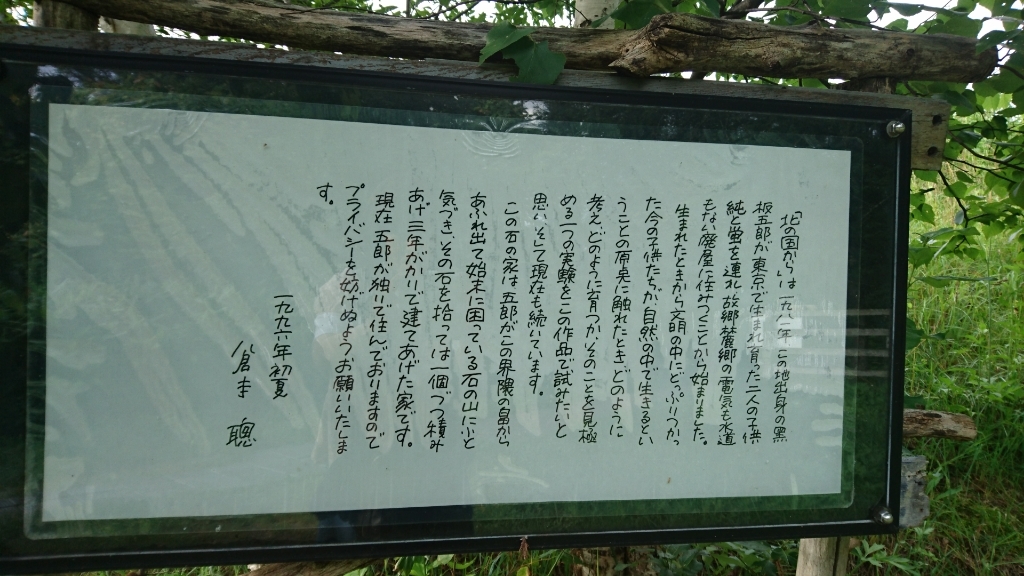 「北の国から」は一九八一年、この地出身の黒
板五郎が東京で生まれ育った二人の子供
純と蛍を連れ、故郷麓郷の電気も水道
もない廃屋に住みつくことから始まりました。
生まれたときから文明の中にどっぷりつかっ
た今の子供たちが、自然の中で生きるとい
うことの原点に触れたとき、どのように
考えどのように育つか、そのことを見極
める一つの実験をこの作品で試みたいと
思い、そして現在も続いています。
この石の家は五郎がこの界隈の畠から
あふれ出て始末に困っている石の山にふと
気づき、その石を拾っては一個づつ積み
あげ二年がかりで建てあげた家です。
現在五郎が独りで住んでおりますので
プライバシーを妨げぬようお願いいたしま
す。
初夏
倉本 聰